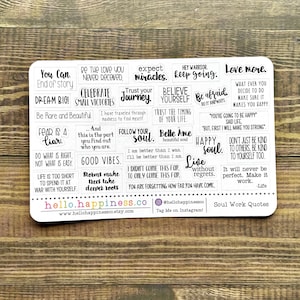 You Can.
End of story.
BE THE LOVE YOU
NEVER RECEIVED.
expect
miracles.
HEY WARRIOR.
Keep going.
Love more.
DREAM BIG!
CELEBRATE
SMALL VICTORIES.
Trust your
Journey.
BELIEVE
YOURSELF
Be afraid
WHAT EVER YOU
DECIDE TO DO
MAKE SURE IT
MAKES YOU HAPPY.
Be Rare and Beautiful
I have traveled through
madness to find me.
TRUST THE TIMING
OF YOUR LIFE.
"YOU'RE GOING TO BE HAPPY"
SAID LIFE,
"BUT FIRST I WILL MAKE YOU STRONG."
FEAR IS A
Liar.
And
this is the part
you find out
who you are.
FOLLOW YOUR
SOUL.
Belle Âme
beautiful soul
HAPPY
SOUL.
DON'T JUST BE KIND
TO OTHERS. BE KIND
TO YOURSELF TOO.
DO WHAT IS RIGHT.
NOT WHAT IS EASY.
GOOD VIBES.
I am better than I was.
I will be better than I am.
Live
without
regret.
It will never be
perfect. Make it
work.
LIFE IS TOO SHORT
TO SPEND IT AT
WAR WITH YOURSELF
Storms make
trees take
deeper roots
I DIDN'T COME THIS FAR,
TO ONLY COME THIS FAR.
YOU ARE FORGETTING HOW FAR YOU HAVE COME.
-Life
hello.happiness.co
www.hellohappinessco.etsy.com
@hellohappinessco
Tag Me on Instagram!
Soul Work Quotes